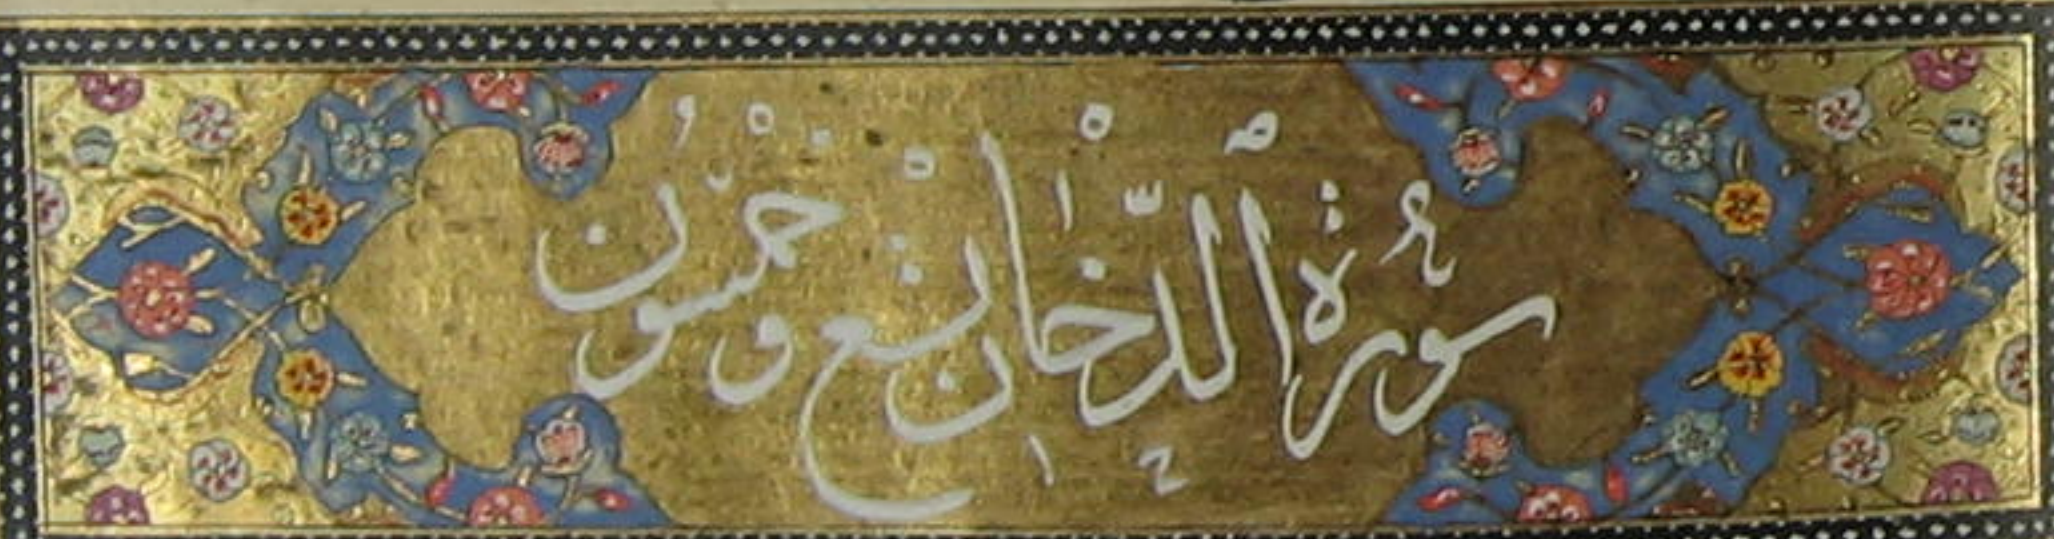 سُورَةُ ٱلدُّخَانِ تِسْعٌ وَخَمْسُونَ